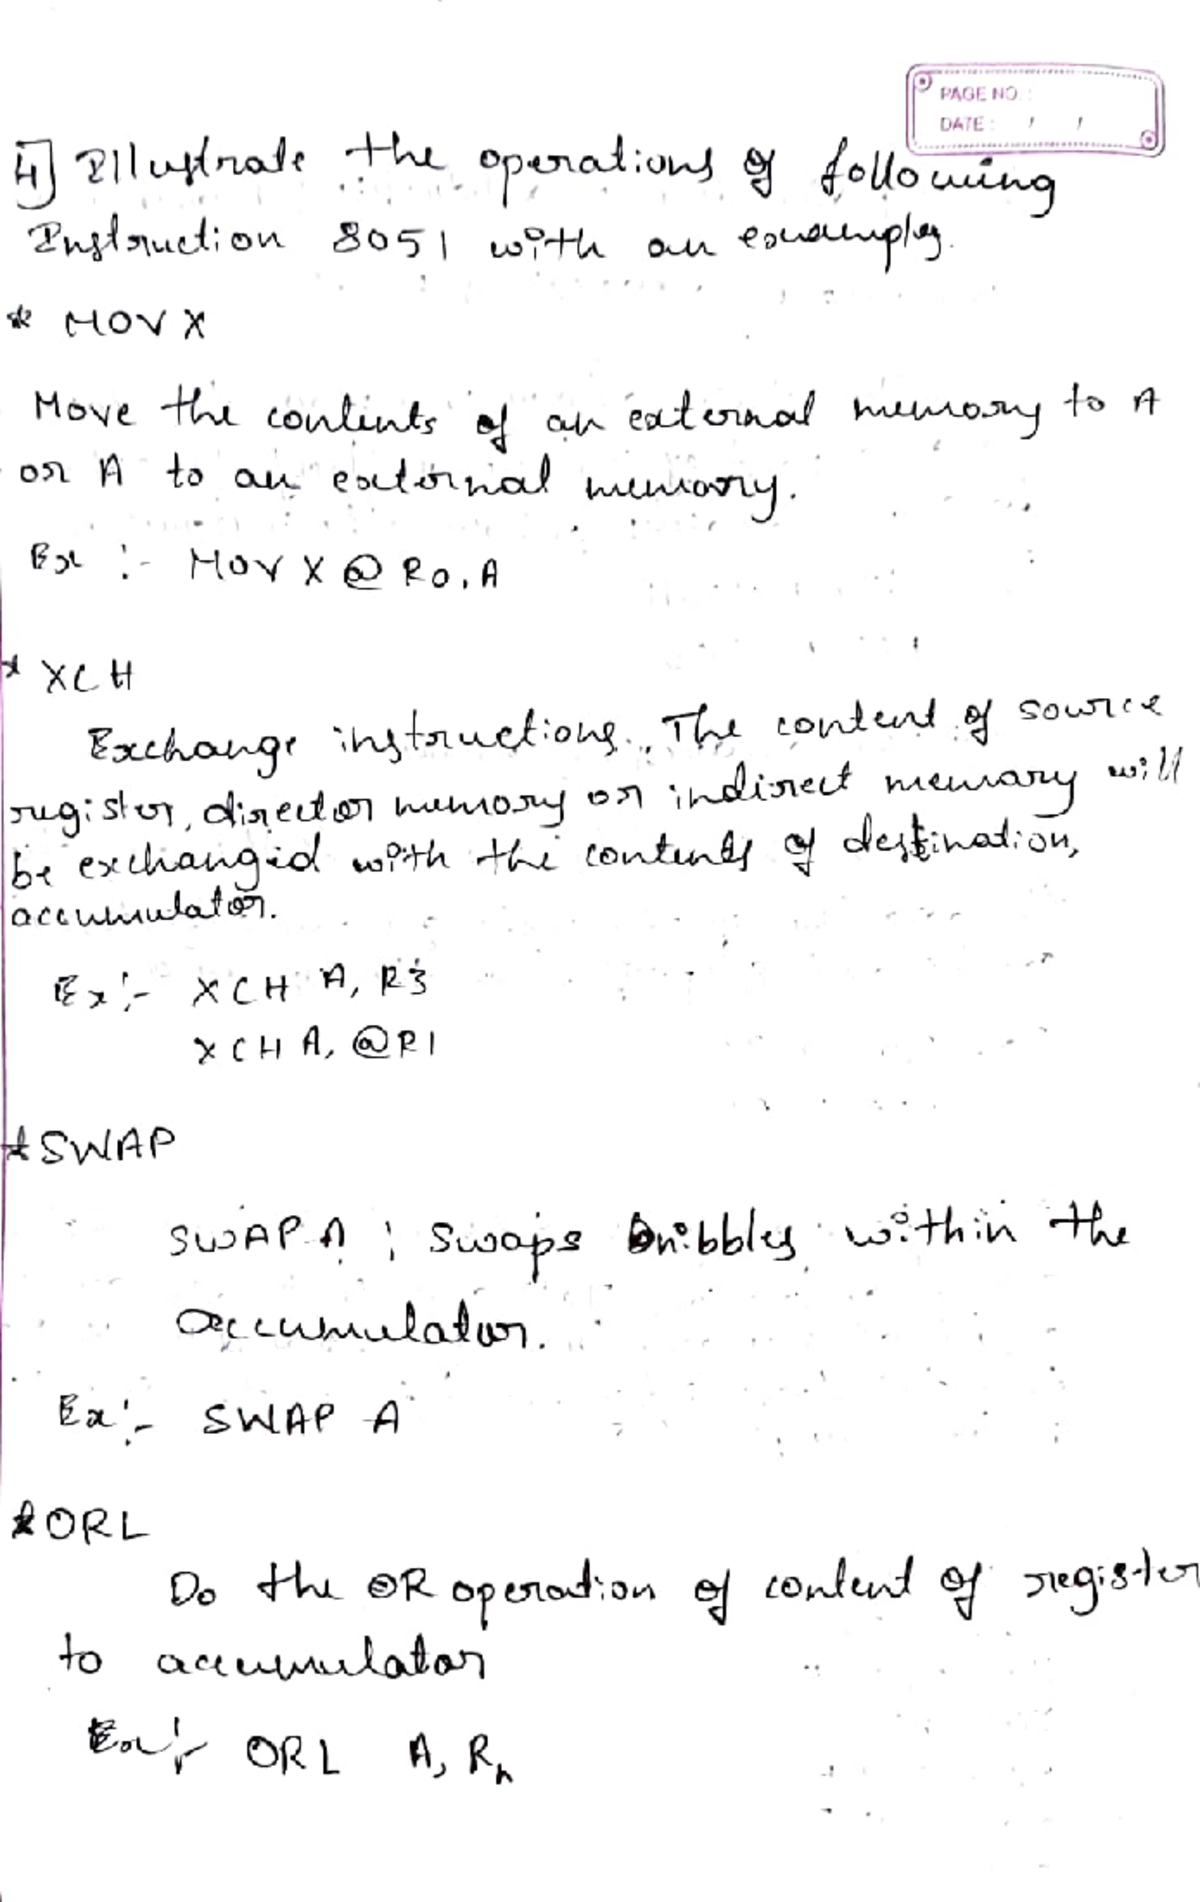 PAGE NO.:
DATE: / /
4] Illustrate the operations of following
Instruction 8051 with an examples.
* MOV X
Move the contents of an external memory to A
or A to an external memory.
Ex :- MOV X @ R0, A
* XCH
Exchange instructions. The content of source
register, director memory or indirect memory will
be exchanged with the contents of destination,
accumulator.
Ex :- XCH A, R3
XCH A, @R1
* SWAP
SWAP A ; Swaps nibbles within the
accumulator.
Ex :- SWAP A
* ORL
Do the OR operation of content of register
to accumulator
Ex :- ORL A, Rn